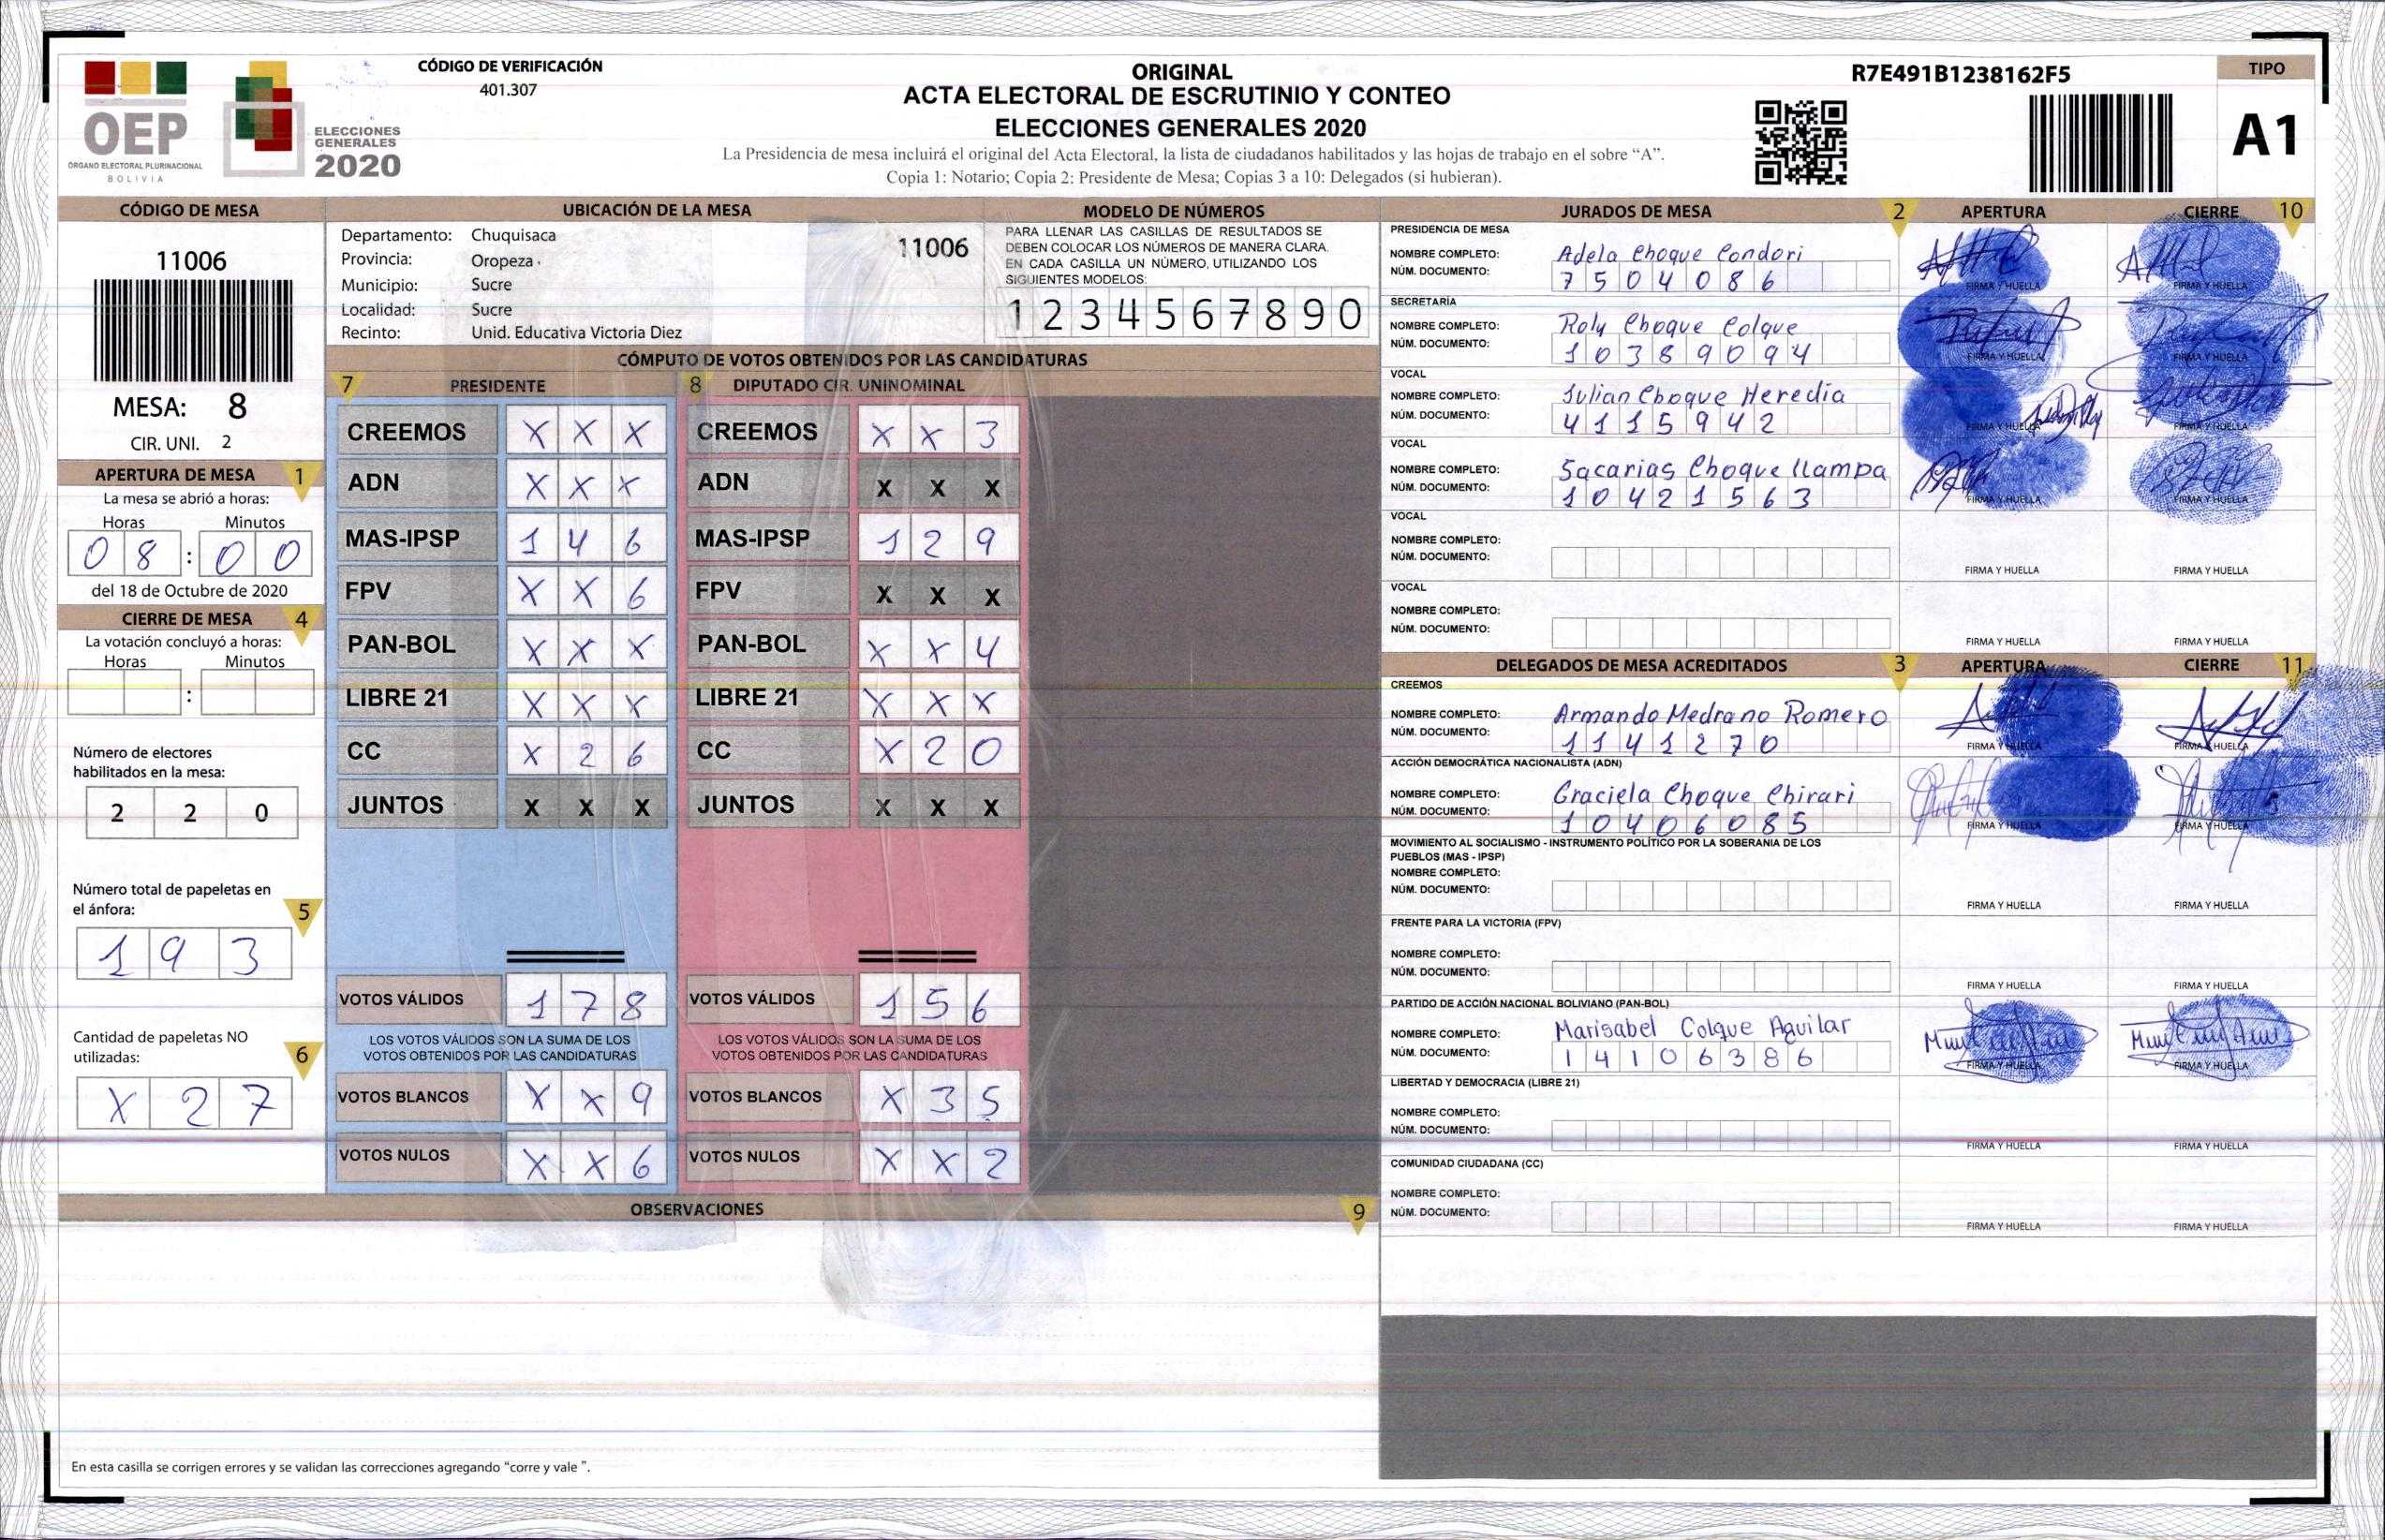 CÓDIGO DE VERIFICACIÓN
401.307
OEP
ÓRGANO ELECTORAL PLURINACIONAL
BOLIVIA
ELECCIONES
GENERALES
2020
ORIGINAL
ACTA ELECTORAL DE ESCRUTINIO Y CONTEO
ELECCIONES GENERALES 2020
La Presidencia de mesa incluirá el original del Acta Electoral, la lista de ciudadanos habilitados y las hojas de trabajo en el sobre “A”.
Copia 1: Notario; Copia 2: Presidente de Mesa; Copias 3 a 10: Delegados (si hubieran).
R7E491B1238162F5
TIPO
A1
CÓDIGO DE MESA
11006
MESA: 8
CIR. UNI. 2
APERTURA DE MESA 1
La mesa se abrió a horas:
Horas Minutos
0 8 : 0 0
del 18 de Octubre de 2020
CIERRE DE MESA 4
La votación concluyó a horas:
Horas Minutos
:
Número de electores
habilitados en la mesa:
2 2 0
Número total de papeletas en
el ánfora: 5
1 9 3
Cantidad de papeletas NO
utilizadas: 6
X 2 7
UBICACIÓN DE LA MESA
Departamento: Chuquisaca
Provincia: Oropeza
Municipio: Sucre
Localidad: Sucre
Recinto: Unid. Educativa Victoria Diez
11006
MODELO DE NÚMEROS
PARA LLENAR LAS CASILLAS DE RESULTADOS SE
DEBEN COLOCAR LOS NÚMEROS DE MANERA CLARA.
EN CADA CASILLA UN NÚMERO, UTILIZANDO LOS
SIGUIENTES MODELOS:
1 2 3 4 5 6 7 8 9 0
CÓMPUTO DE VOTOS OBTENIDOS POR LAS CANDIDATURAS
7 PRESIDENTE
CREEMOS X X X
ADN X X X
MAS-IPSP 1 4 6
FPV X X 6
PAN-BOL X X X
LIBRE 21 X X X
CC X 2 6
JUNTOS X X X
VOTOS VÁLIDOS 1 7 8
LOS VOTOS VÁLIDOS SON LA SUMA DE LOS
VOTOS OBTENIDOS POR LAS CANDIDATURAS
VOTOS BLANCOS X X 9
VOTOS NULOS X X 6
8 DIPUTADO CIR. UNINOMINAL
CREEMOS X X 3
ADN X X X
MAS-IPSP 1 2 9
FPV X X X
PAN-BOL X X 4
LIBRE 21 X X X
CC X 2 0
JUNTOS X X X
VOTOS VÁLIDOS 1 5 6
LOS VOTOS VÁLIDOS SON LA SUMA DE LOS
VOTOS OBTENIDOS POR LAS CANDIDATURAS
VOTOS BLANCOS X 3 5
VOTOS NULOS X X 2
OBSERVACIONES 9
En esta casilla se corrigen errores y se validan las correcciones agregando “corre y vale ”.
JURADOS DE MESA 2 APERTURA CIERRE 10
PRESIDENCIA DE MESA
NOMBRE COMPLETO: Adela Choque Condori
NÚM. DOCUMENTO: 7 5 0 4 0 8 6
FIRMA Y HUELLA FIRMA Y HUELLA
SECRETARÍA
NOMBRE COMPLETO: Roly Choque Colque
NÚM. DOCUMENTO: 1 0 3 8 9 0 9 4
FIRMA Y HUELLA FIRMA Y HUELLA
VOCAL
NOMBRE COMPLETO: Julian Choque Heredia
NÚM. DOCUMENTO: 4 1 1 5 9 4 2
FIRMA Y HUELLA FIRMA Y HUELLA
VOCAL
NOMBRE COMPLETO: Sacarias Choque llampa
NÚM. DOCUMENTO: 1 0 4 2 1 5 6 3
FIRMA Y HUELLA FIRMA Y HUELLA
VOCAL
NOMBRE COMPLETO:
NÚM. DOCUMENTO:
FIRMA Y HUELLA FIRMA Y HUELLA
VOCAL
NOMBRE COMPLETO:
NÚM. DOCUMENTO:
FIRMA Y HUELLA FIRMA Y HUELLA
DELEGADOS DE MESA ACREDITADOS 3 APERTURA CIERRE 11
CREEMOS
NOMBRE COMPLETO: Armando Medrano Romero
NÚM. DOCUMENTO: 1 1 4 1 2 7 0
FIRMA Y HUELLA FIRMA Y HUELLA
ACCIÓN DEMOCRÁTICA NACIONALISTA (ADN)
NOMBRE COMPLETO: Graciela Choque Chirari
NÚM. DOCUMENTO: 1 0 4 0 6 0 8 5
FIRMA Y HUELLA FIRMA Y HUELLA
MOVIMIENTO AL SOCIALISMO - INSTRUMENTO POLÍTICO POR LA SOBERANIA DE LOS
PUEBLOS (MAS - IPSP)
NOMBRE COMPLETO:
NÚM. DOCUMENTO:
FIRMA Y HUELLA FIRMA Y HUELLA
FRENTE PARA LA VICTORIA (FPV)
NOMBRE COMPLETO:
NÚM. DOCUMENTO:
FIRMA Y HUELLA FIRMA Y HUELLA
PARTIDO DE ACCIÓN NACIONAL BOLIVIANO (PAN-BOL)
NOMBRE COMPLETO: Marisabel Colque Aguilar
NÚM. DOCUMENTO: 1 4 1 0 6 3 8 6
FIRMA Y HUELLA FIRMA Y HUELLA
LIBERTAD Y DEMOCRACIA (LIBRE 21)
NOMBRE COMPLETO:
NÚM. DOCUMENTO:
FIRMA Y HUELLA FIRMA Y HUELLA
COMUNIDAD CIUDADANA (CC)
NOMBRE COMPLETO:
NÚM. DOCUMENTO:
FIRMA Y HUELLA FIRMA Y HUELLA